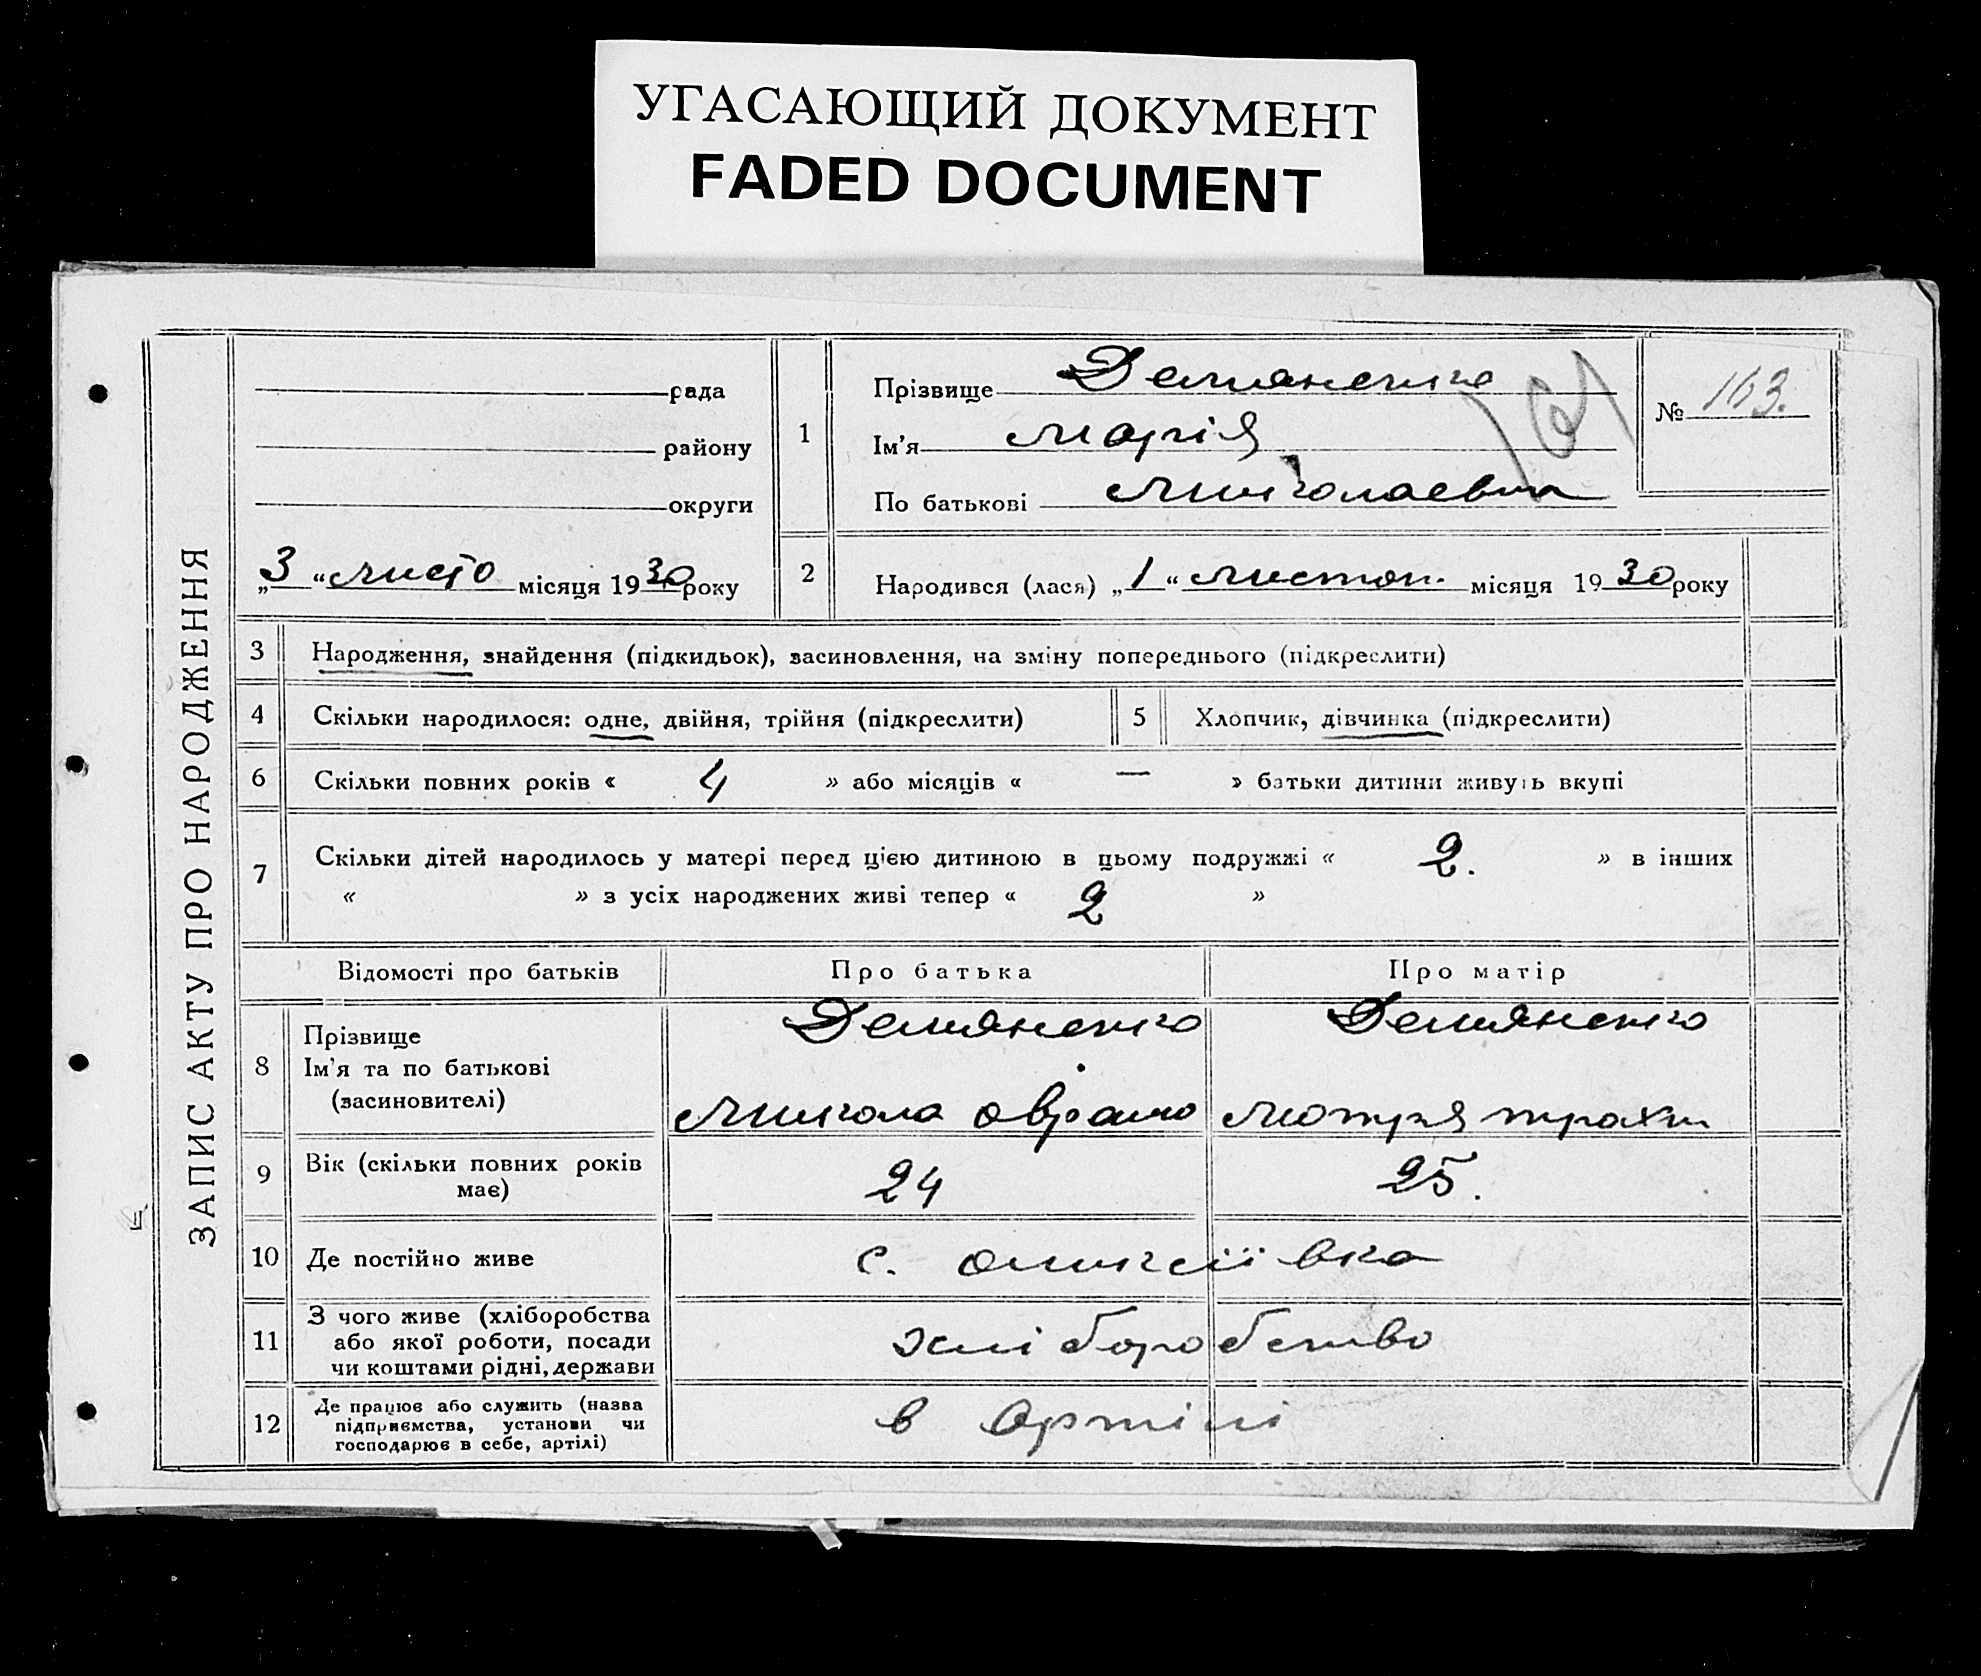 УГАСАЮЩИЙ ДОКУМЕНТ
FADED DOCUMENT
ЗАПИС АКТУ ПРО НАРОДЖЕННЯ
рада
району
округи
„3“ листо місяця 1930 року
1
Прізвище Демяненко
Ім'я Марія
По батькові Миколаевна
№ 163.
2
Народився (лася) „1“ листоп. місяця 1930 року
3 Народження, знайдення (підкидьок), засиновлення, на зміну попереднього (підкреслити)
4 Скільки народилося: одне, двійня, трійня (підкреслити)
5 Хлопчик, дівчинка (підкреслити)
6 Скільки повних років « 4 » або місяців « — » батьки дитини живуть вкупі
7 Скільки дітей народилось у матері перед цією дитиною в цьому подружжі « 2. » в інших
« » з усіх народжених живі тепер « 2 »
Відомості про батьків Про батька Про матір
8 Прізвище
Ім'я та по батькові
(засиновителі)
Демяненко
Микола Аврамо
Демяненко
Мотря
9 Вік (скільки повних років
має)
24
25.
10 Де постійно живе
с. Оликсіївка
11 З чого живе (хліборобства
або якої роботи, посади
чи коштами рідні, держави
хліборобство
12 Де працює або служить (назва
підприємства, установи чи
господарює в себе, артілі)
в Артілі